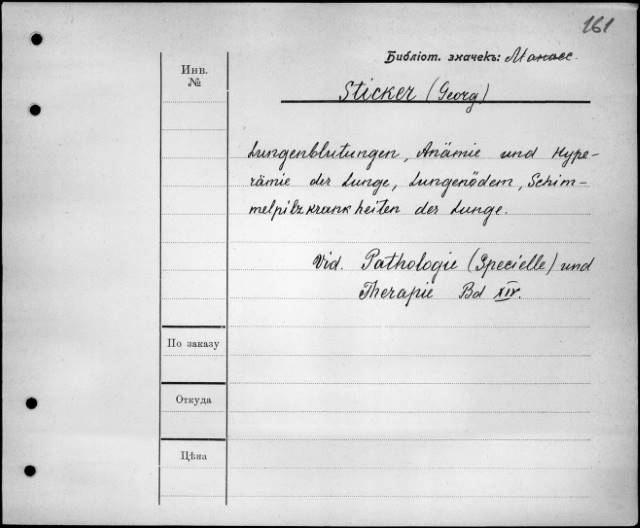 161
Библіот. значекъ: Манасс.
Инв.
№
Sticker (Georg)
Lungenblutungen, Anämie und Hype-
rämie der Lunge, Lungenödem, Schim-
melpilzkrankheiten der Lunge.
Vid. Pathologie (Specielle) und
Therapie Bd XIV.
По заказу
Откуда
Цѣна